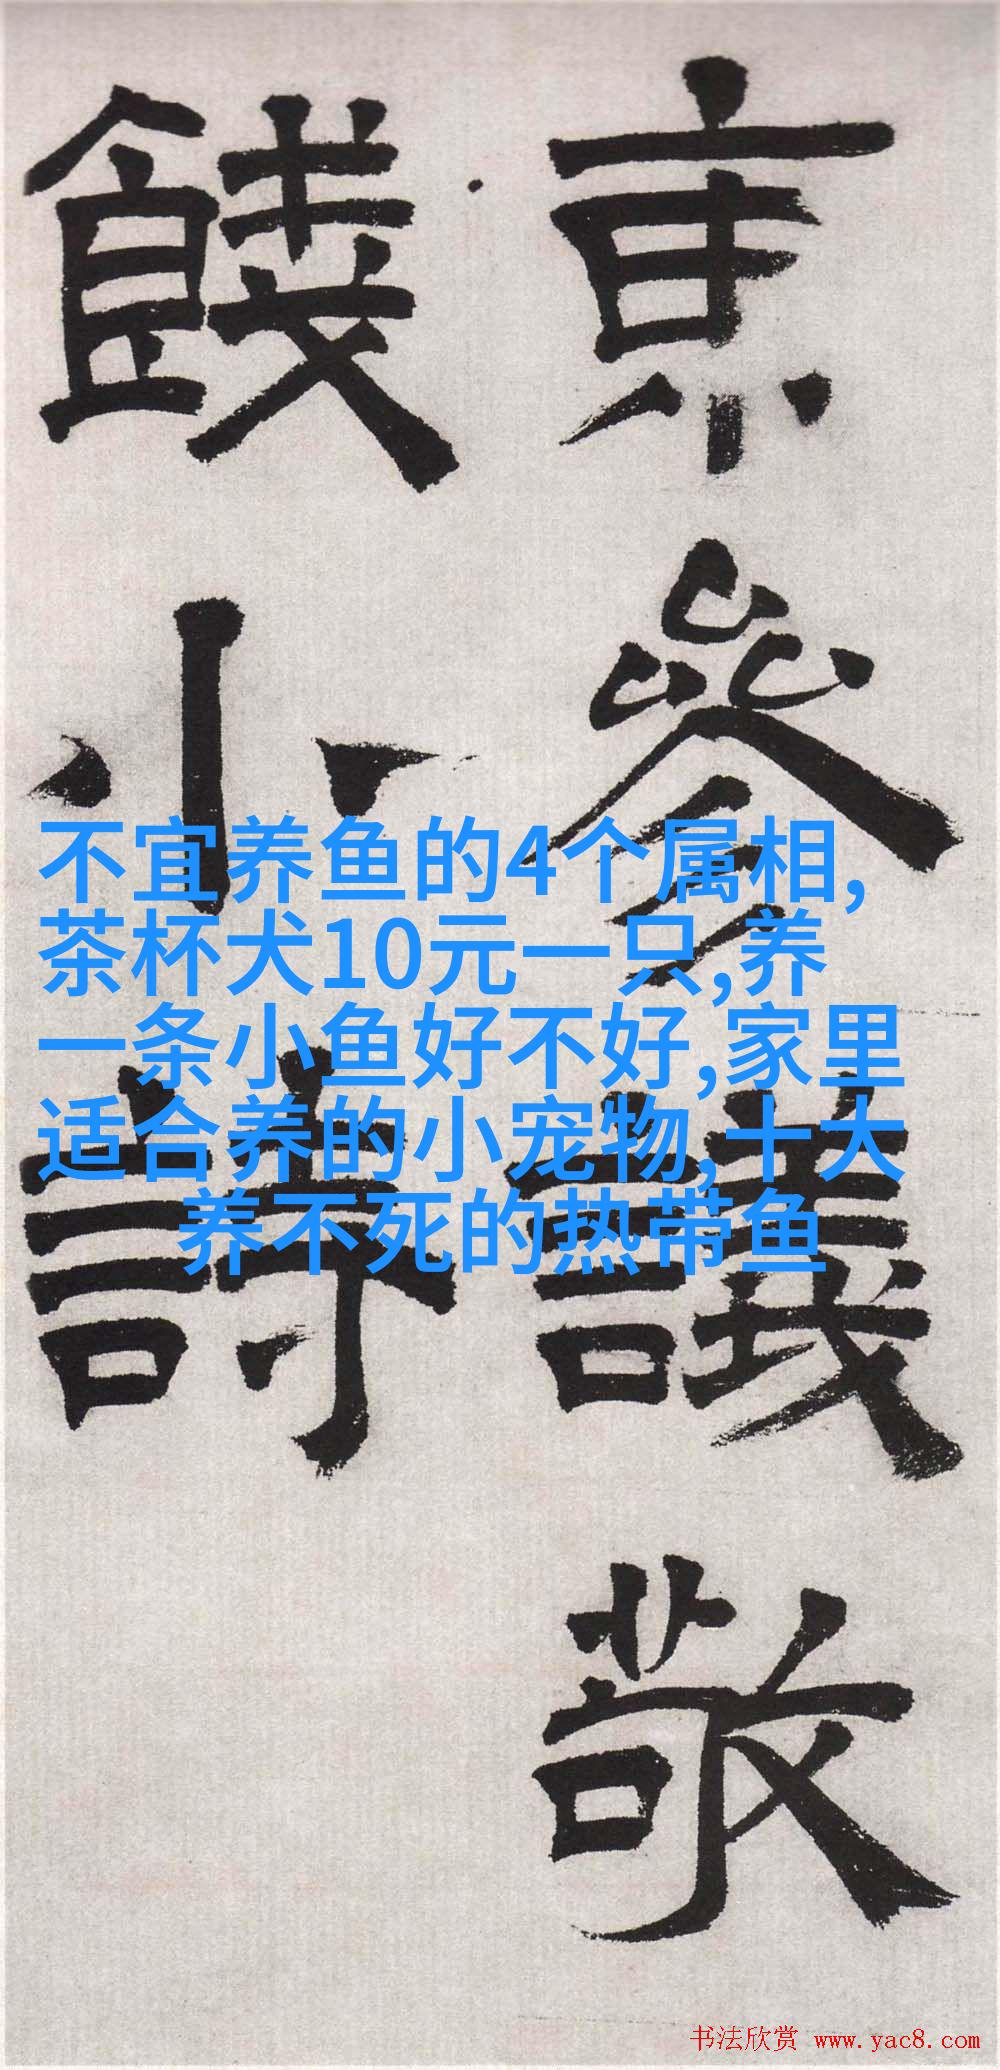 京参議敬
餞小詩
不宜养鱼的4个属相,
茶杯犬10元一只,养
一条小鱼好不好,家里
适合养的小宠物,十大
养不死的热带鱼
书法欣赏 www.yac8.com